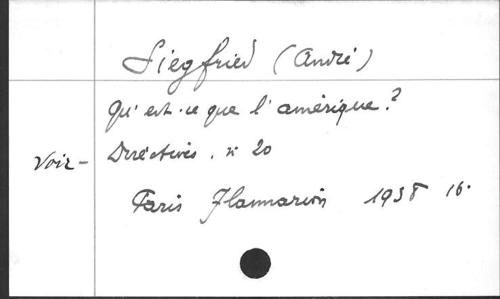 Siegfried (André)
Qu'est-ce que l'amérique?
Voir - Directives. n° 20
Paris Flammarion 1938 16.